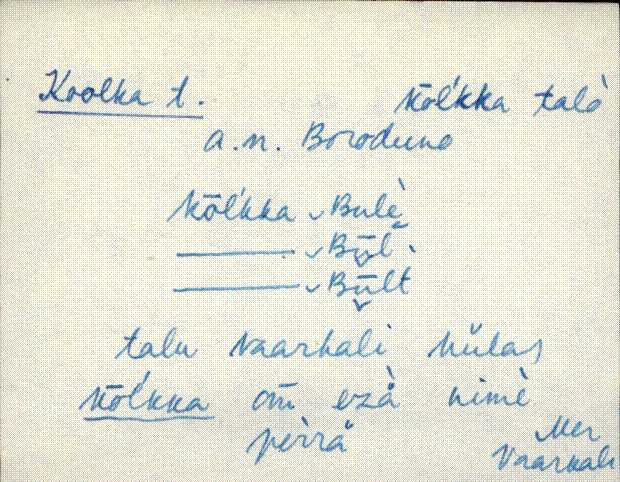 Koolka t. kōĺkka talò
a.n. Boroduno
kōĺkka ᴗ Bulè
——— ᴗ Būl̀
——— ᴗ Būlt
talu Vaarkali külas
kōĺkka om̄ ezà nimè
perrä
Mer
Vaarkali